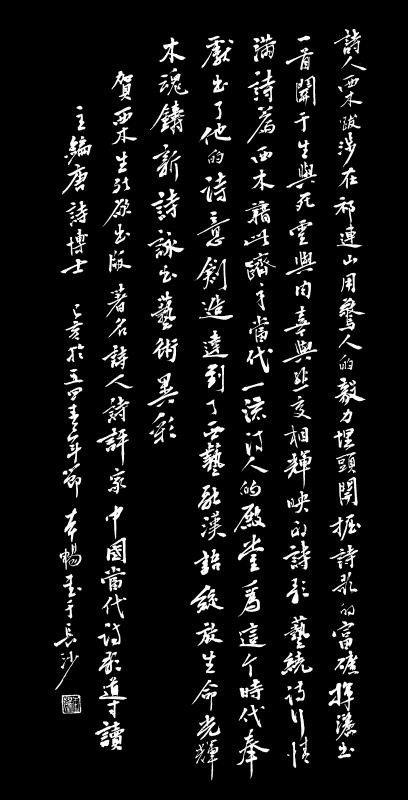 詩人西木跋涉在祁連山用驚人的毅力埋頭開掘詩歌的富礦揮灑出
一首關于生與死靈與肉喜與悲交相輝映的詩歌藝術詩行情
滿詩篇西木藉此躋身當代一流詩人的殿堂為這个時代奉
獻出了他的詩意創造達到了
漢語綻放生命光輝
木魂鑄新詩詠出藝術異彩
賀西木生活原出版著名詩人詩評家中國當代詩歌導讀
主編唐詩博士己亥於五四青年節李暢書于長沙